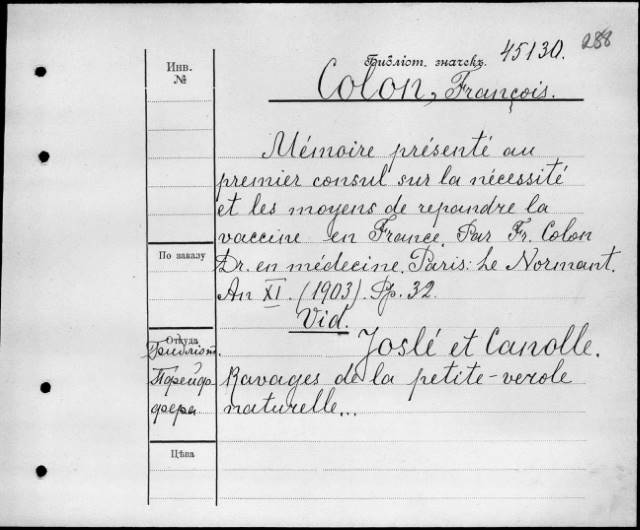 45130. 288
Инв.
№
Библіот. значекъ.
Colon, François.
Mémoire présenté au
premier consul sur la nécessité
et les moyens de repandre la
vaccine en France. Par Fr. Colon
По заказу
Dr. en médecine. Paris: Le Normant.
An XI. (1903). Pp. 32.
Vid.
Откуда
Библіот.
Joslé et Canolle.
Ravages de la petite-verole
naturelle...
Цѣна